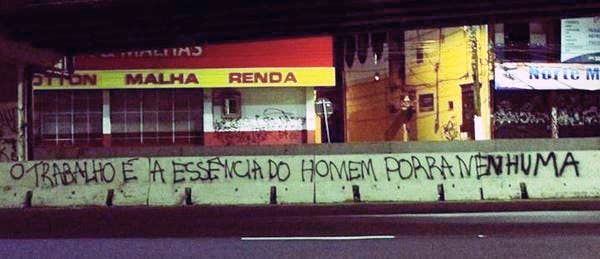 & MALHAS
OTTON MALHA RENDA
Norte M
O TRABALHO É A ESSÊNCIA DO HOMEM PORRA NENHUMA